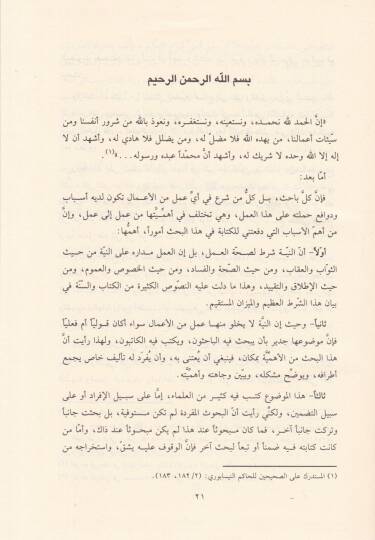 بسم الله الرحمن الرحيم
«إنَّ الحمد لله نحمـده، ونستعينه، ونستغفره، ونعوذ بالله من شرور أنفسنا ومن
سيّئات أعمالنا، من يهده الله فلا مضلّ له، ومن يضلل فلا هادي له، وأشهد أن لا
إله إلا الله وحده لا شريك له، وأشهد أنَّ محمّداً عبده ورسوله...»(١).
أمّا بعد:
فإنَّ كلَّ باحث، بـل كلُّ من شرع في أيِّ عمل من الأعمـال تكون لديه أسبـاب
ودوافع حملته على هذا العمل، وهي تختلف في أهمِّيَّتها من عمل إلى عمل، وإنَّ
من أهمّ الأسباب التي دفعتني للكتابة في هذا البحث أموراً، أهمُّها:
أولاً- أن النيّـة شرط لصحّة العمـل، بل إن العمل مـداره على النيّة من حيـث
الثواب والعقاب، ومن حيث الصّحّة والفساد، ومن حيث الخصوص والعموم، ومن
حيث الإطلاق والتقييد، وهذا ما دلت عليه النصوص الكثيرة من الكتاب والسنّة في
بيان هذا الشّرط العظيم والميزان المستقيم.
ثانياً- وحيث إن النيَّة لا يخلو منهـا عمل من الأعمال سواء أكان قوليّـاً أم فعليّاً
فإنَّ موضوعها جدير بأن يبحث فيه الباحثون، ويكتب فيه الكاتبون، ولهذا رأيت أنَّ
هذا البحث من الأهميَّة بمكان، فينبغي أن يُعتنى به، وأن يُفرَد له تأليف خاص يجمع
أطرافه، ويوضّح مشكله، ويبّين وجاهته وأهميَّته.
ثالثاً- هذا الموضوع كتـب فيه كثيـر من العلماء، إمّا على سبـيل الإفراد أو على
سبيل التضمين، ولكنّي رأيت أنّ البحوث المفردة لم تكن مستوفية، بل بحثت جانباً
وتركت جانباً آخـر، فما كان مبـحوثاً عند هذا لم يكن مبحوثاً عند ذاك، وأمّا من
كانت كتابته فيـه ضمناً أو تبعاً لبحث آخر فإنَّ الوقوف عليـه يشقّ، واستخراجه من
(١) المستدرك على الصحيحين للحاكم النيسابوري: (٢/ ١٨٢، ١٨٣).
٢١